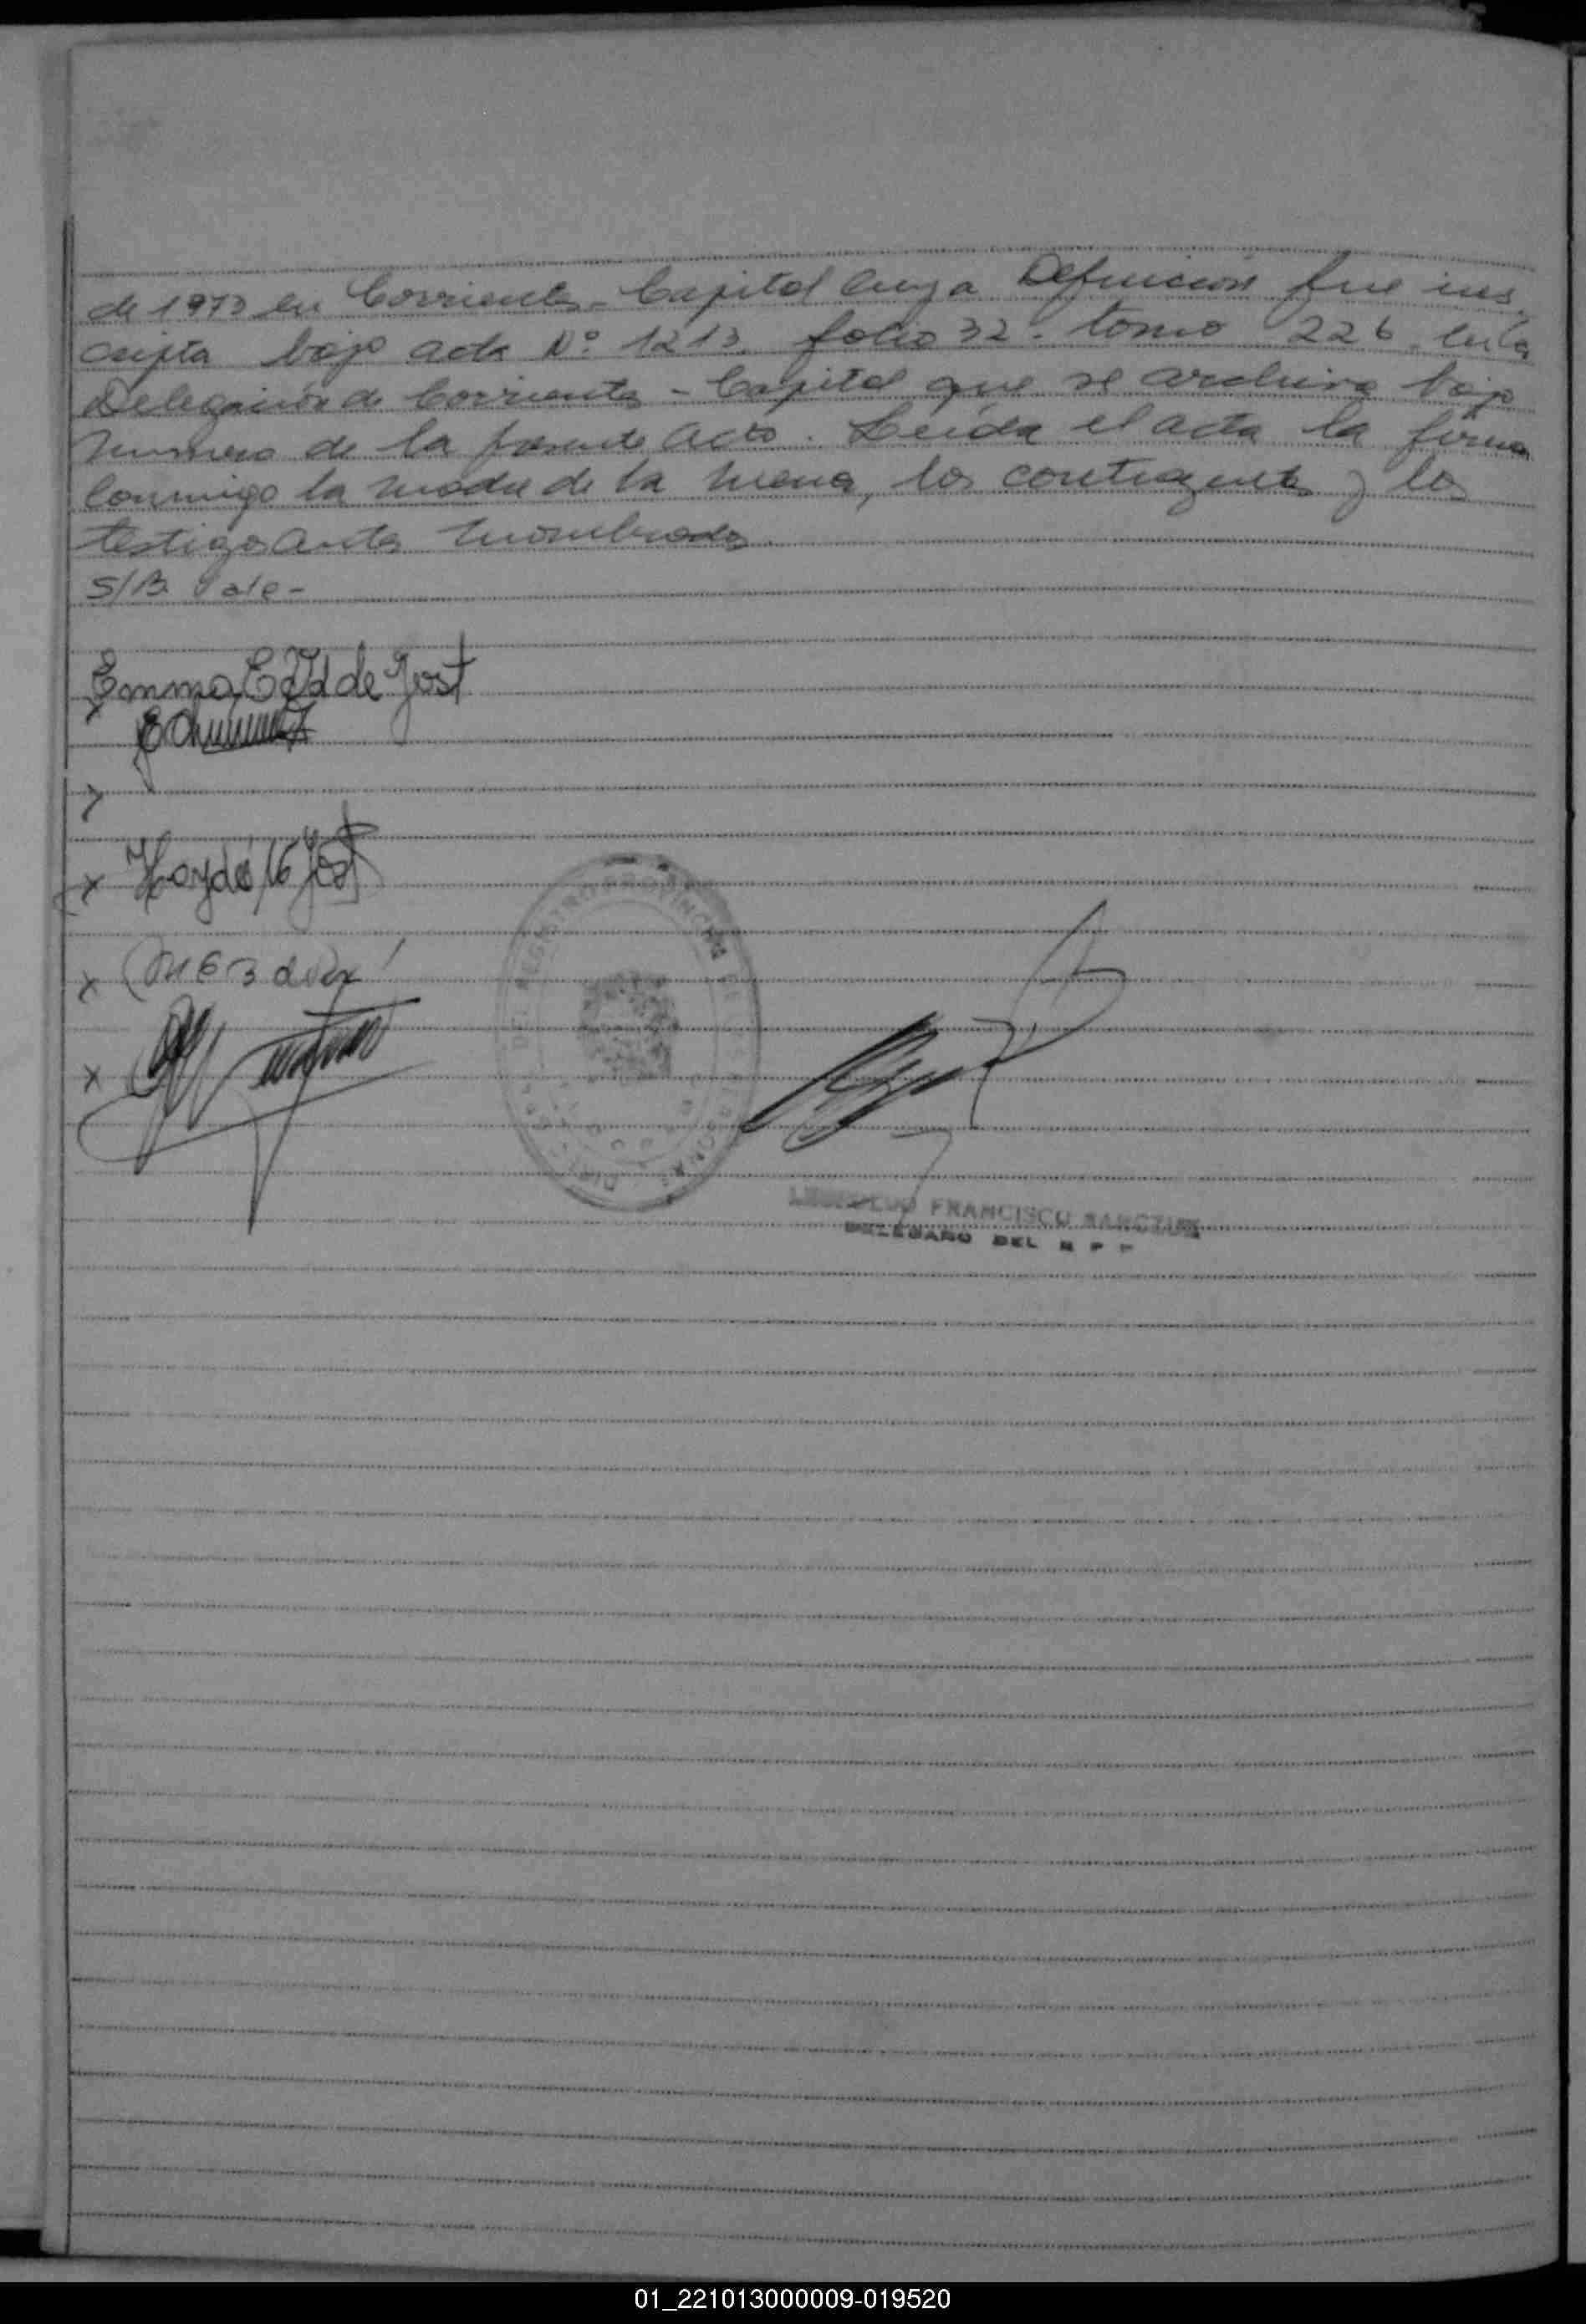 de 1973 en Corrientes - Capital cuya Defunción fue ins
cripta bajo acta Nº 1213. folio 32. tomo 226. en la
Delegación de Corrientes - Capital que se archiva bajo
número de la presente acto. Leída el acta la firma
conmigo la madre de la menor, los contrayentes y los
testigos antes nombrados.
S/B. Vale -
Emma de Jost
Haydé Jost
FRANCISCO
DELEGADO DEL R P P
01_221013000009-019520